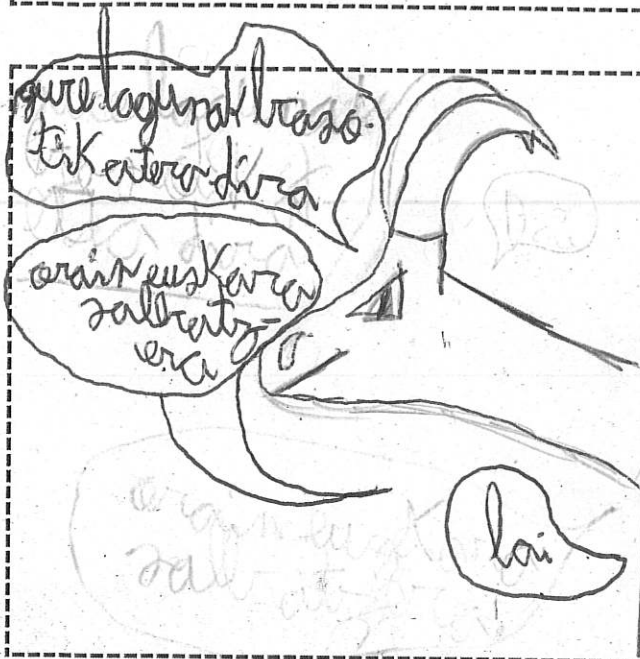 gure lagunak braso-
tik atera dira
orain euskara
salbatz-
era
bai